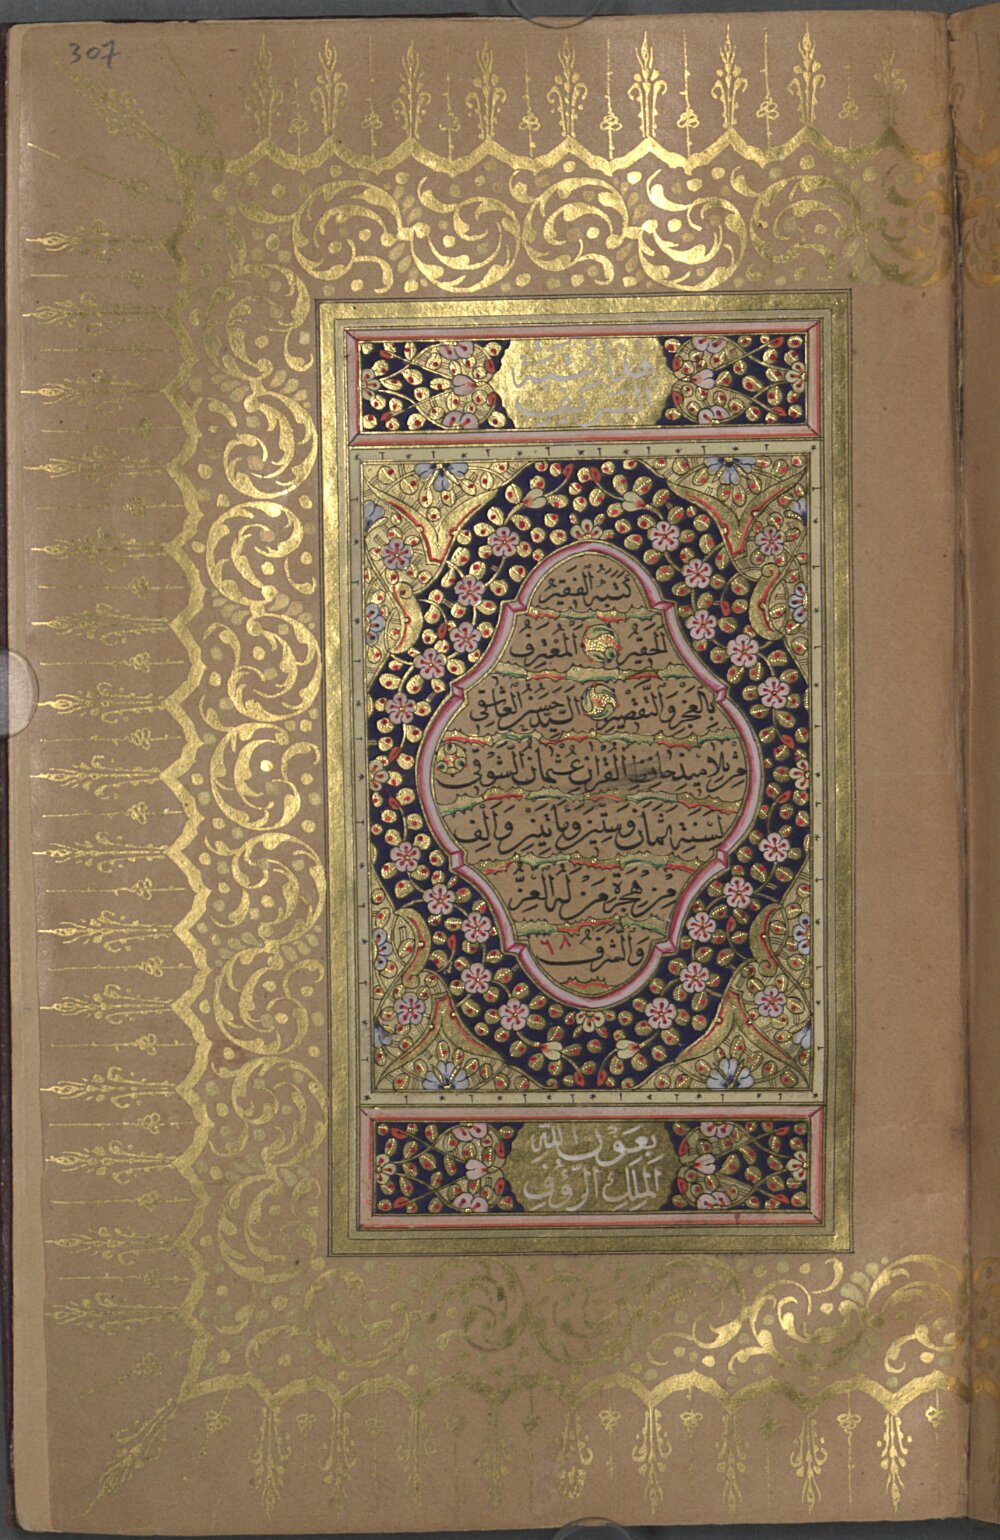 307
كتبه الفقير
الحقير المعترف
بالعجز والتقصير السيد حسن العاشقي
من تلاميذ حافظ القرآن عثمان الشوقي
لسنة ثمان وستين ومأتين والف
من هجرة من له العز
والشرف ٦٨
بعون الله
الملك الرؤف